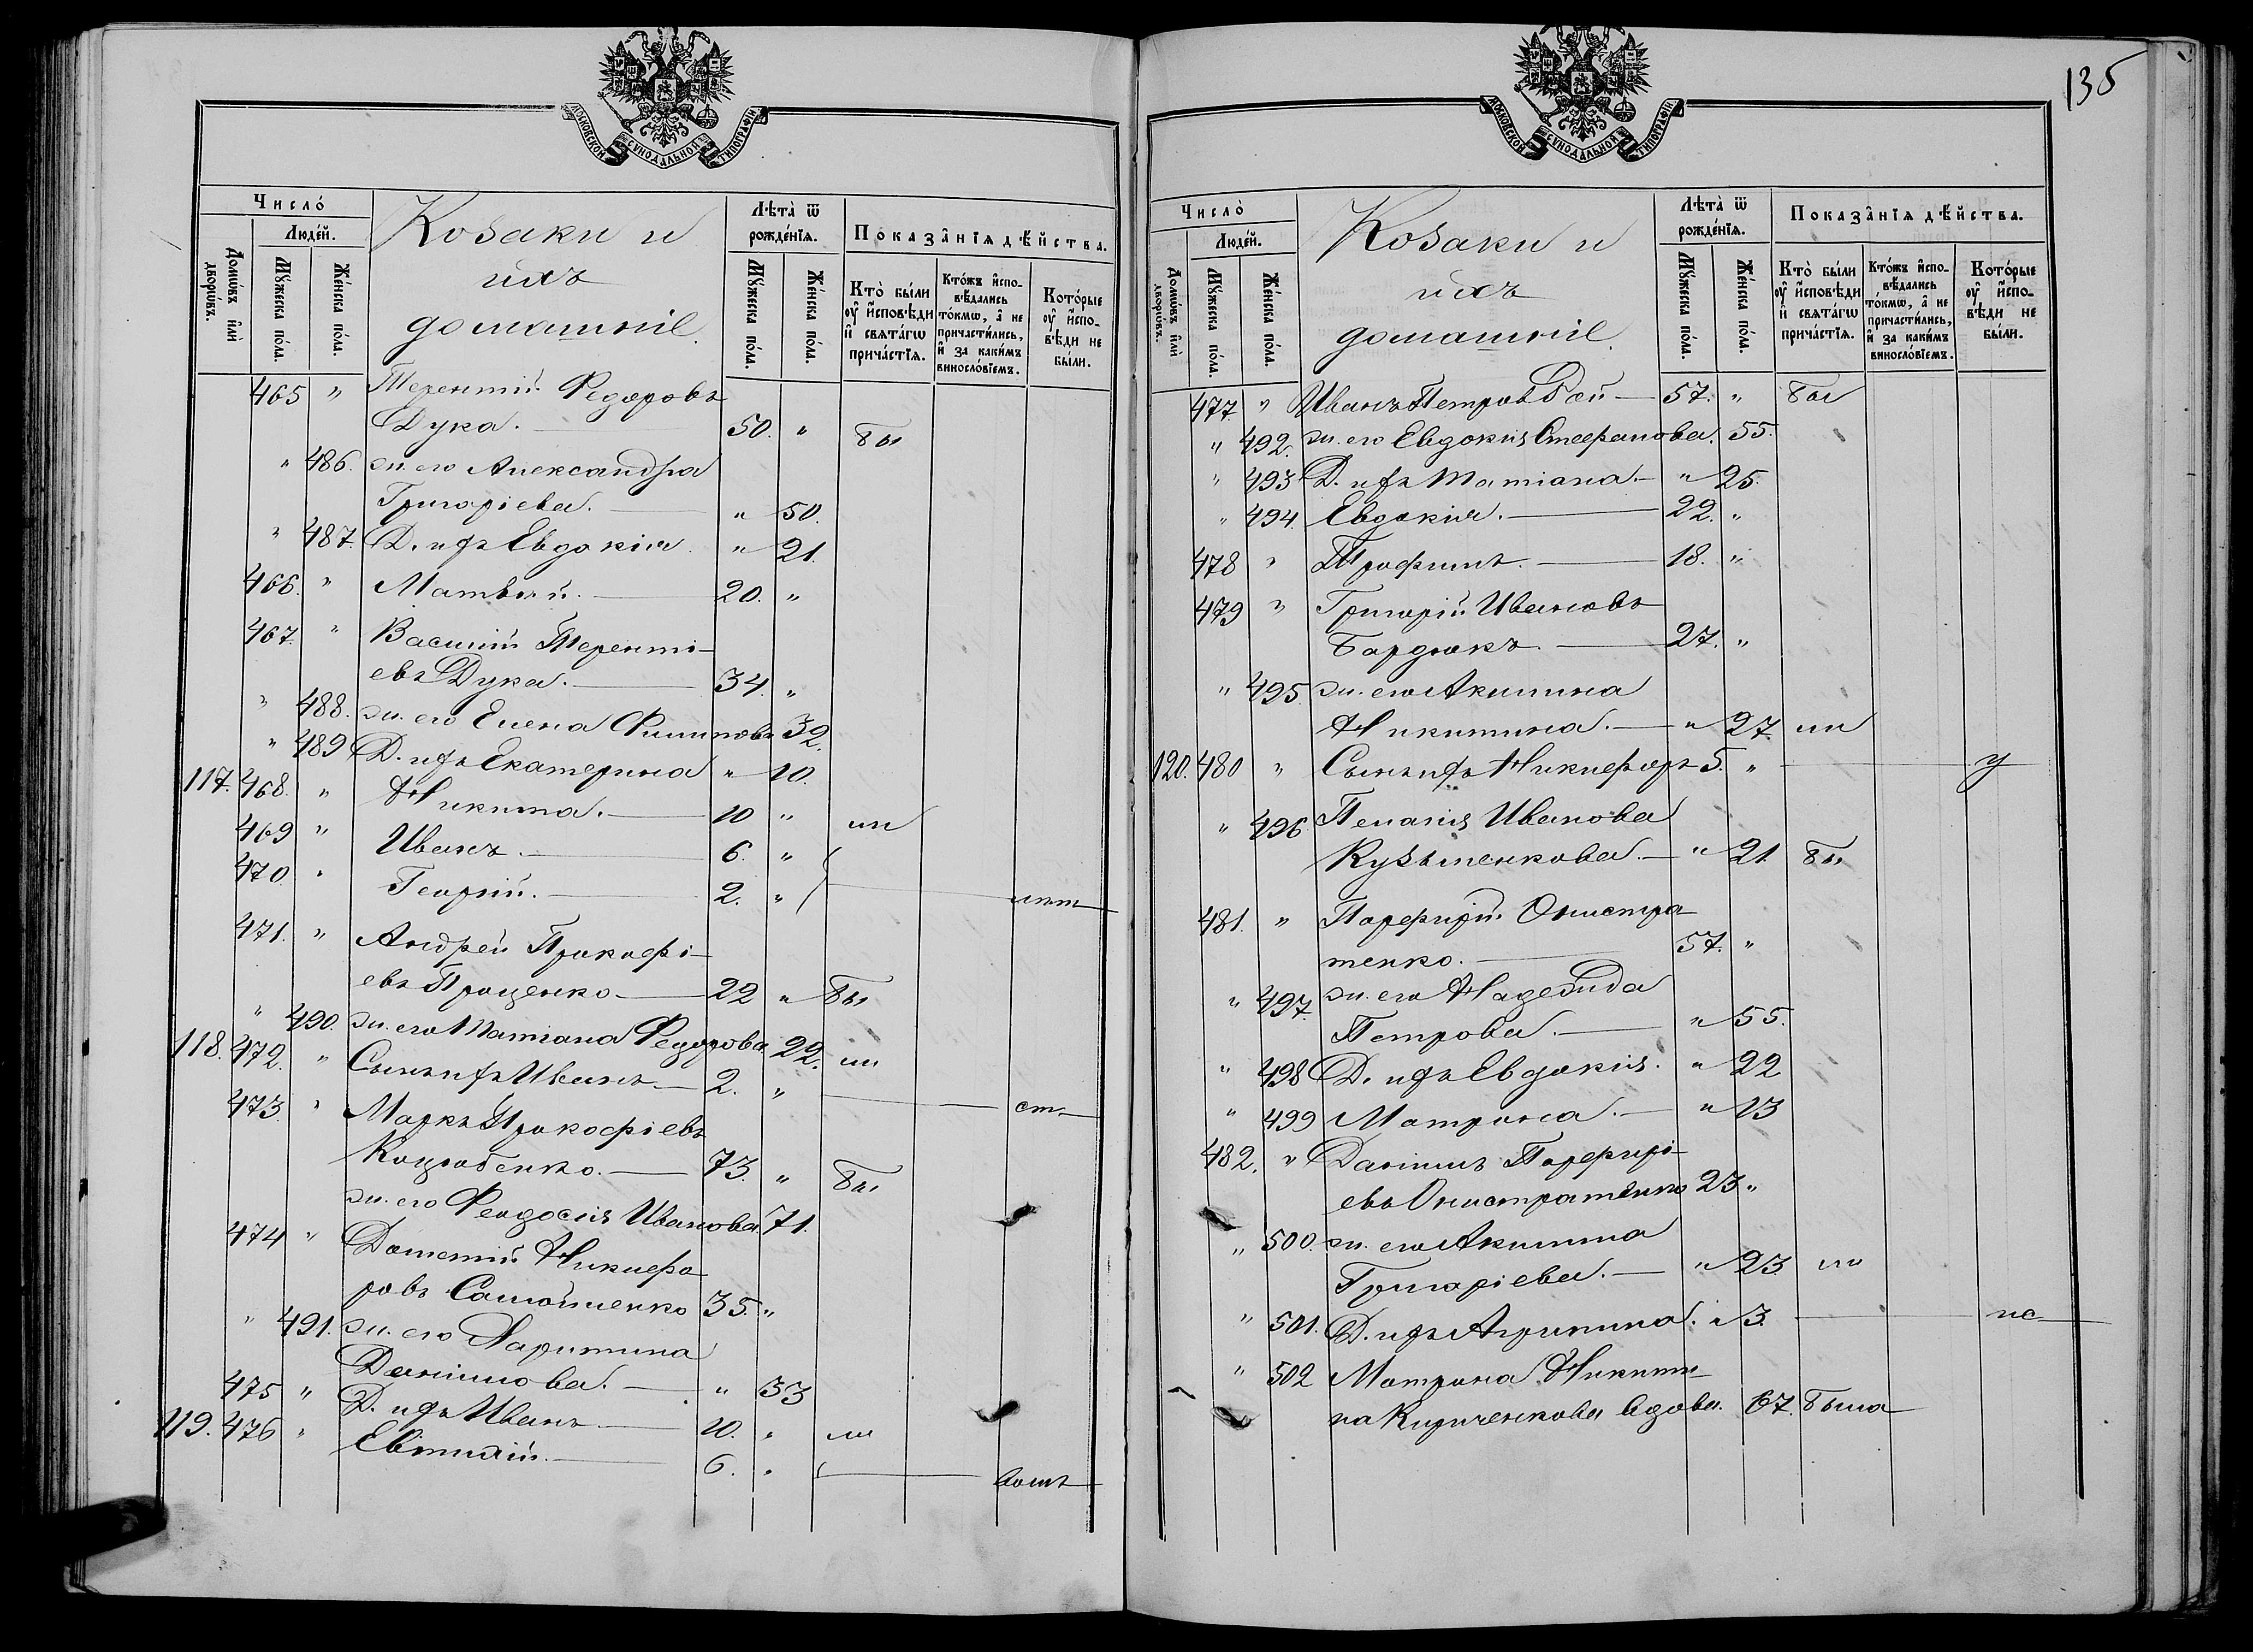 МОСКОВСКОЙ СѴНОДАЛЬНОЙ ТИПОГРАФІИ
Число̀
Людей.
Домѡвъ и҆лѝ дворѡвъ.
Мꙋ́жеска по́ла.
Же́нска по́ла.
Козаки и
ихъ
домашніе.
Лѣта̀ ѿ
рожде́нїѧ.
Мꙋ́жеска по́ла.
Же́нска по́ла.
Показа̂нїѧ дѣ́йства.
Кто̀ бы́ли ᲂу҆ и҆сповѣди и҆ свѧта́гѡ прича́стїѧ.
Кто́жъ и҆спо-вѣдались то́кмѡ, а҆ не причасти́лись, и҆ за каки́мъ винословїемъ.
Кото́рые ᲂу҆ и҆спо-вѣди не бы́ли.
465 " Терентій Федоровъ
Дука. — 50. " бы
" 486. ж. его Александра
Григоріева. — " 50.
" 487. Д. ихъ Евдокія. " 21.
466. " Матвѣй. — 20. "
467. " Василій Теренті-
евъ Дука. — 34. "
" 488. ж. его Елена Филипова 32.
" 489 Д. ихъ Екатерина " 10.
117. 468. " Никита. — 10 " ли
469 " Иванъ. — 6. "
470 " Георгій. — 2. "
471. " Андрей Прокофі-
евъ Проценко — 22 " бы
" 490. ж. его Татіана Федорова 22. ли
118. 472. " Сынъ ихъ Иванъ — 2. " ст
473. " Маркъ Прокофіевъ
Коцюбенко. — 73. " бы
ж. его Феодосія Иванова. 71.
474 " Дометій Никифо
ровъ Самойленко 35. "
" 491. ж. его Харитина
Даніилова. — " 33
475 " Д. ихъ Иванъ — 10. " ли
119. 476 " Евтихій. — 6. "
135
МОСКОВСКОЙ СѴНОДАЛЬНОЙ ТИПОГРАФІИ
Число̀
Людей.
Домѡвъ и҆лѝ дворѡвъ.
Мꙋ́жеска по́ла.
Же́нска по́ла.
Козаки и
ихъ
домашніе.
Лѣта̀ ѿ
рожде́нїѧ.
Мꙋ́жеска по́ла.
Же́нска по́ла.
Показа̂нїѧ дѣ́йства.
Кто̀ бы́ли ᲂу҆ и҆сповѣди и҆ свѧта́гѡ прича́стїѧ.
Кто́жъ и҆спо-вѣдались то́кмѡ, а҆ не причасти́лись, и҆ за каки́мъ винословїемъ.
Кото́рые ᲂу҆ и҆спо-вѣди не бы́ли.
477 " Иванъ Петровъ — 57. " бы
" 492. ж. его Евдокія Стефанова. 55.
" 493 Д. ихъ Татіана. — " 25.
" 494. Евдокія. — 22. "
478 " Трофимъ. — 18. "
479 " Григорій Ивановъ
Бардюкъ. — 27. "
" 495 ж. его Акилина
Никитина. — " 27 ли
120. 480 " Сынъ ихъ Никифоръ 5. " у
" 496 Пелагія Иванова
Кузьменкова. — " 21 бы
481. " Порфирій Онистра
тенко. — 57. "
" 497. ж. его Надежда
Петрова. — " 55.
" 498 Д. ихъ Евдокія. " 22
" 499 Матрона. — " 13
482. " Даніилъ Порфирі-
евъ Онистратенко 23 "
" 500. ж. его Акилина
Григоріева. — " 23 ли
" 501. Д. ихъ Агрипина. " 3.
" 502 Матрона Никити-
на Кириченкова вдова. 67. была